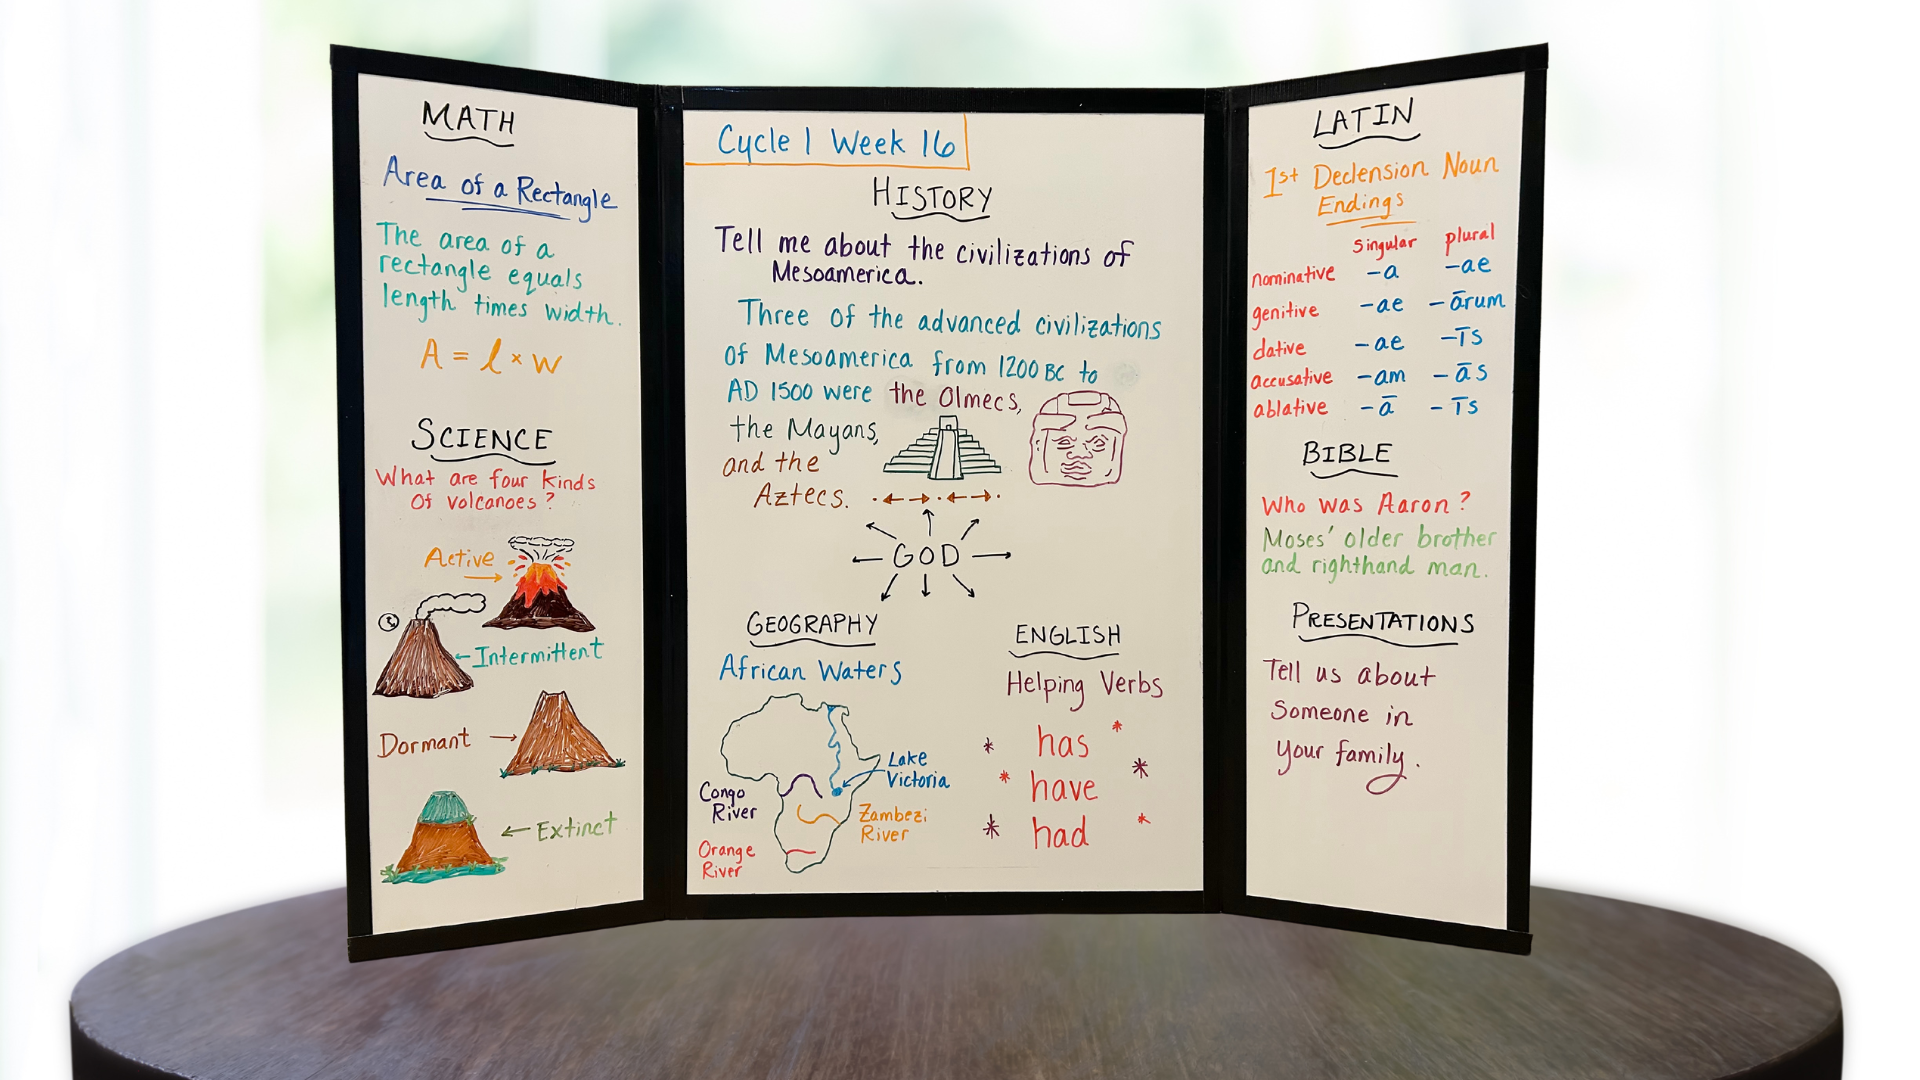 MATH
Area of a Rectangle
The area of a
rectangle equals
length times width.
A = l × w
SCIENCE
What are four kinds
of volcanoes?
Active
Intermittent
Dormant
Extinct
Cycle 1 Week 16
HISTORY
Tell me about the civilizations of
Mesoamerica.
Three of the advanced civilizations
of Mesoamerica from 1200 BC to
AD 1500 were the Olmecs,
the Mayans,
and the
Aztecs.
GOD
GEOGRAPHY
African Waters
Lake
Victoria
Congo
River
Zambezi
River
Orange
River
ENGLISH
Helping Verbs
has
have
had
LATIN
1st Declension Noun
Endings
singular plural
nominative -a -ae
genitive -ae -ārum
dative -ae -īs
accusative -am -ās
ablative -ā -īs
BIBLE
Who was Aaron?
Moses' older brother
and righthand man.
PRESENTATIONS
Tell us about
Someone in
your family.